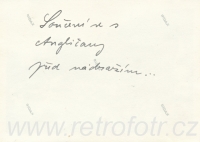 Loučení se s
Angličany
před nádražím...
www.retrofotr.cz